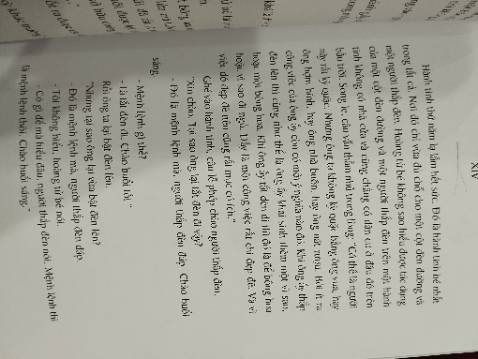 XIV
Hành tinh thứ năm lạ lắm hết sức. Đó là hành tinh bé nhất
trong tất cả. Nơi đó chỉ vừa đủ chỗ cho một cột đèn đường và
một người thắp đèn. Hoàng tử bé không sao hiểu được tác dụng
của một cột đèn đường và một người thắp đèn trên một hành
tinh không có nhà cửa và cũng chẳng có dân cư ở đâu đó trên
bầu trời. Song le, cậu vẫn thầm nhủ trong lòng: "Có thể là người
này rất kỳ quặc. Nhưng ông ta không kỳ quặc bằng ông vua, hay
ông hợm hĩnh, hay ông nhà buôn, hay ông nát rượu. Bởi ít ra
công việc của ông ấy còn có một ý nghĩa nào đó. Khi ông ấy thắp
đèn lên thì cũng như thể là ông ấy khai sinh thêm một vì sao,
hoặc một bông hoa. Khi ông ấy tắt đèn đi thì đó là để bông hoa
hoặc vì sao đi ngủ. Đấy là một công việc rất chi đẹp đẽ. Và vì
việc đó đẹp đẽ nên cũng rất mực có ích."
Ghé vào hành tinh, cậu lễ phép chào người thắp đèn.
"Xin chào. Tại sao ông lại tắt đèn đi vậy?
- Đó là mệnh lệnh mà, người thắp đèn đáp. Chào buổi
sáng.
- Mệnh lệnh gì thế?
- Là tắt đèn đi. Chào buổi tối."
Rồi ông ta lại bật đèn lên.
"Nhưng tại sao ông lại vừa bật đèn lên?
- Đó là mệnh lệnh mà, người thắp đèn đáp.
- Tôi không hiểu, hoàng tử bé nói.
- Có gì để mà hiểu đâu, người thắp đèn nói. Mệnh lệnh thì
là mệnh lệnh thôi. Chào buổi sáng."